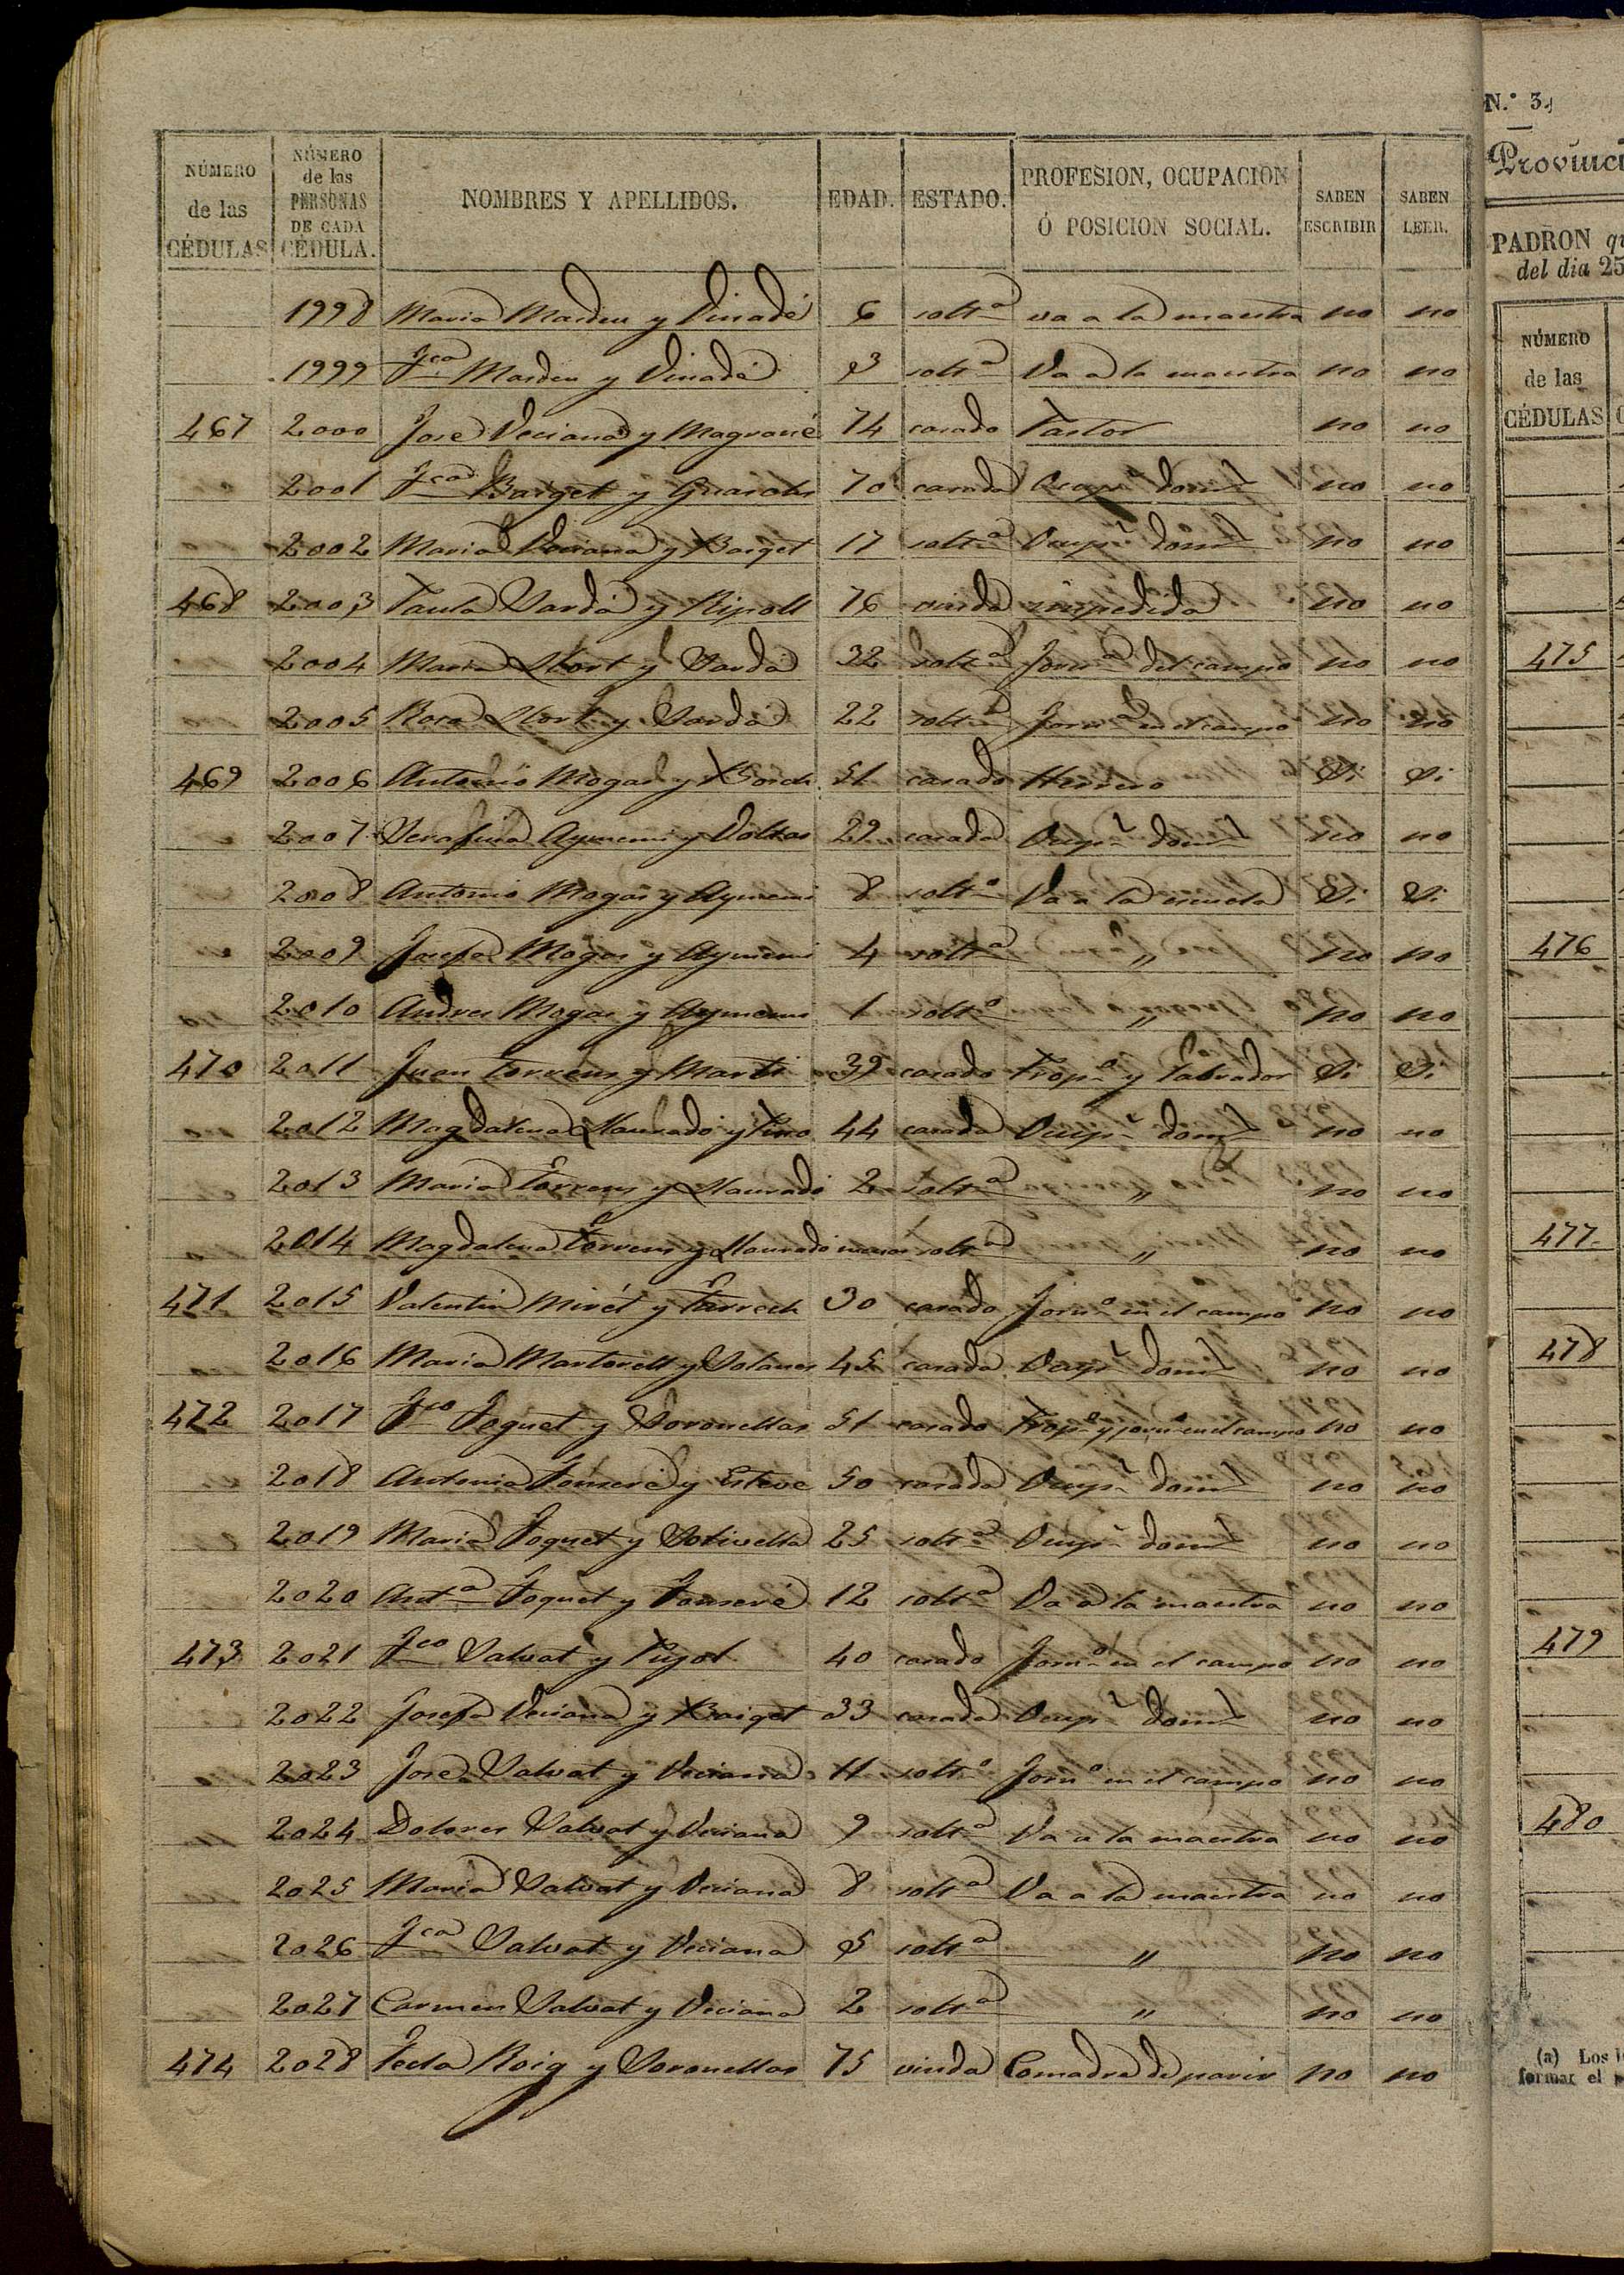 NÚMERO de las CÉDULAS | NÚMERO de las PERSONAS DE CADA CÉDULA. | NOMBRES Y APELLIDOS. | EDAD. | ESTADO. | PROFESION, OCUPACION Ó POSICION SOCIAL. | SABEN ESCRIBIR | SABEN LEER.
1998 Maria Masdeu y Vinadé 6 solt.ª va a la maestra no no
1999 Fca Masdeu y Vinadé 3 solt.ª Va a la maestra no no
467 2000 José Veciana y Magrané 74 casado Pastor no no
2001 Fca Baiget y 70 casada Ocup.n dom.l no no
2002 Maria Veciana y Baiget 17 solt.ª Ocup.n dom.l no no
468 2003 Paula Sardá y Ripoll 76 viuda impedida no no
2004 Maria Llort y Sardá 32 solt.ª Jorn.ª del campo no no
2005 Rosa Llort y Sardá 22 solt.ª Jorn.ª en el campo no no
469 2006 Antonio Mogas y Bosch 51 casado Herrero Si Si
2007 Serafina Aymemi y Voltas 29 casada Ocup.n dom.l no no
2008 Antonio Mogas y Aymemi 8 solt.º Va a la escuela Si Si
2009 Josefa Mogas y Aymemi 4 solt.ª " no no
2010 Andres Mogas y Aymemi 1 solt.º " no no
470 2011 Juan Torrens y Marti 39 casado Prop.º y labrador Si Si
2012 Magdalena Llaurado y Pino 44 casada Ocup.n dom.l no no
2013 Maria Torrens y Llauradó 2 solt.ª " no no
2014 Magdalena Torrens y Llauradó meses solt.ª " no no
471 2015 Valentin Mirét y Farrech 30 casado Jorn.º en el campo no no
2016 Maria Martorell y Solanes 45 casada Ocup.n dom.l no no
472 2017 Fco Foguet y Soronellas 51 casado Prop.º y jorn.º en el campo no no
2018 Antonia Fonseré y Esteve 50 casada Ocup.n dom.l no no
2019 Maria Foguet y Solivella 25 solt.ª Ocup.n dom.l no no
2020 Ant.ª Foguet y Fonseré 12 solt.ª Va a la maestra no no
473 2021 Fco Salvat y Pujol 40 casado Jorn.º en el campo no no
2022 Josefa Veciana y Baiget 33 casada Ocup.n dom.l no no
2023 José Salvat y Veciana 11 solt.º Jorn.º en el campo no no
2024 Dolores Salvat y Veciana 9 solt.ª Va a la maestra no no
2025 Maria Salvat y Veciana 8 solt.ª Va a la maestra no no
2026 Fca Salvat y Veciana 5 solt.ª " no no
2027 Carmen Salvat y Veciana 2 solt.ª " no no
474 2028 Tecla Roig y Soronellas 75 viuda Comadre de parir no no
N.º 3.
Provinci
PADRON
del dia 25
NÚMERO
de las
CÉDULAS
475
476
477
478
479
480
(a) Los
formar el